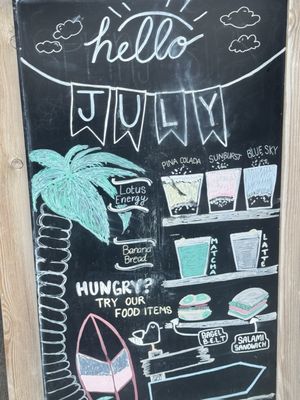 hello
JULY
PINA COLADA
SUNBURST
BLUE SKY
Lotus
Energy
Banana
Bread
MATCHA
LATTE
HUNGRY?
TRY OUR
FOOD ITEMS
BAGEL
BELT
SALAMI
SANDWICH